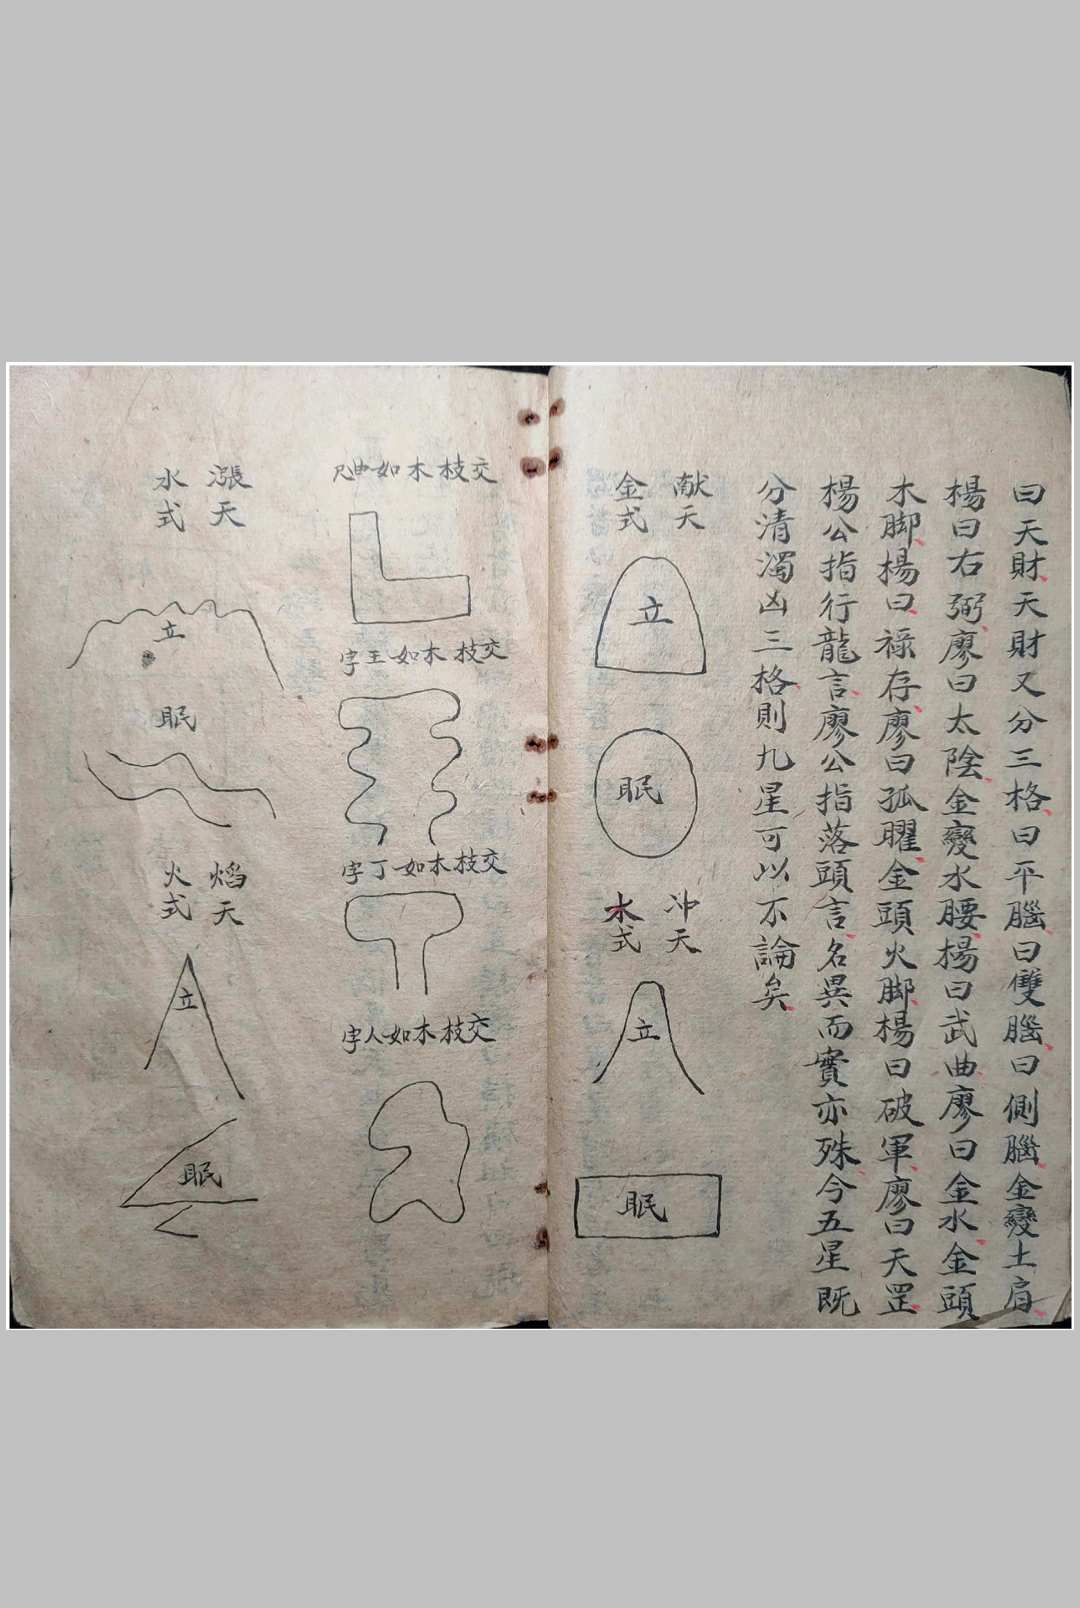 曰天財天財又分三格曰平腦曰雙腦曰側腦金變土肩
楊曰右弼廖曰太陰金變水腰楊曰武曲廖曰金水金頭
木脚楊曰祿存廖曰孤曜金頭火脚楊曰破軍廖曰天罡
楊公指行龍言廖公指落頭言名異而實亦殊今五星既
分清濁凶三格則九星可以不論矣
献天
金式
立
眠
冲天
木式
立
眠
交枝木如曲尺
交枝木如王字
交枝木如丁字
交枝木如人字
漲天
水式
立
眠
焰天
火式
立
眠